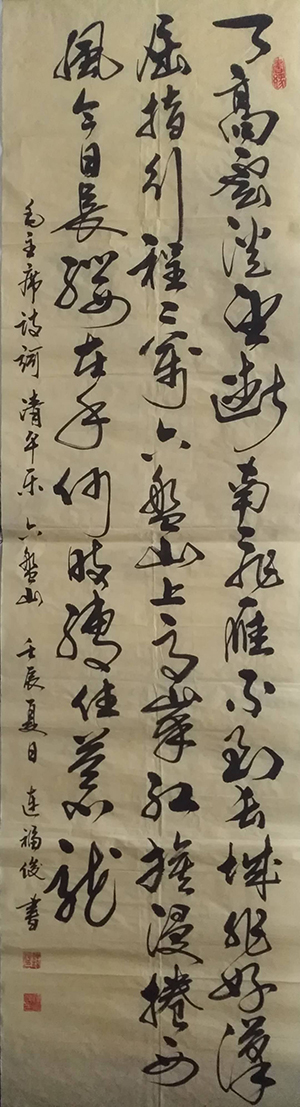 天高云淡望断南飞雁不到长城非好汉
屈指行程二万六盘山上高峰红旗漫捲西
風今日长缨在手何时缚住苍龙
毛主席诗词清平乐六盘山 壬辰夏日 连福俊书